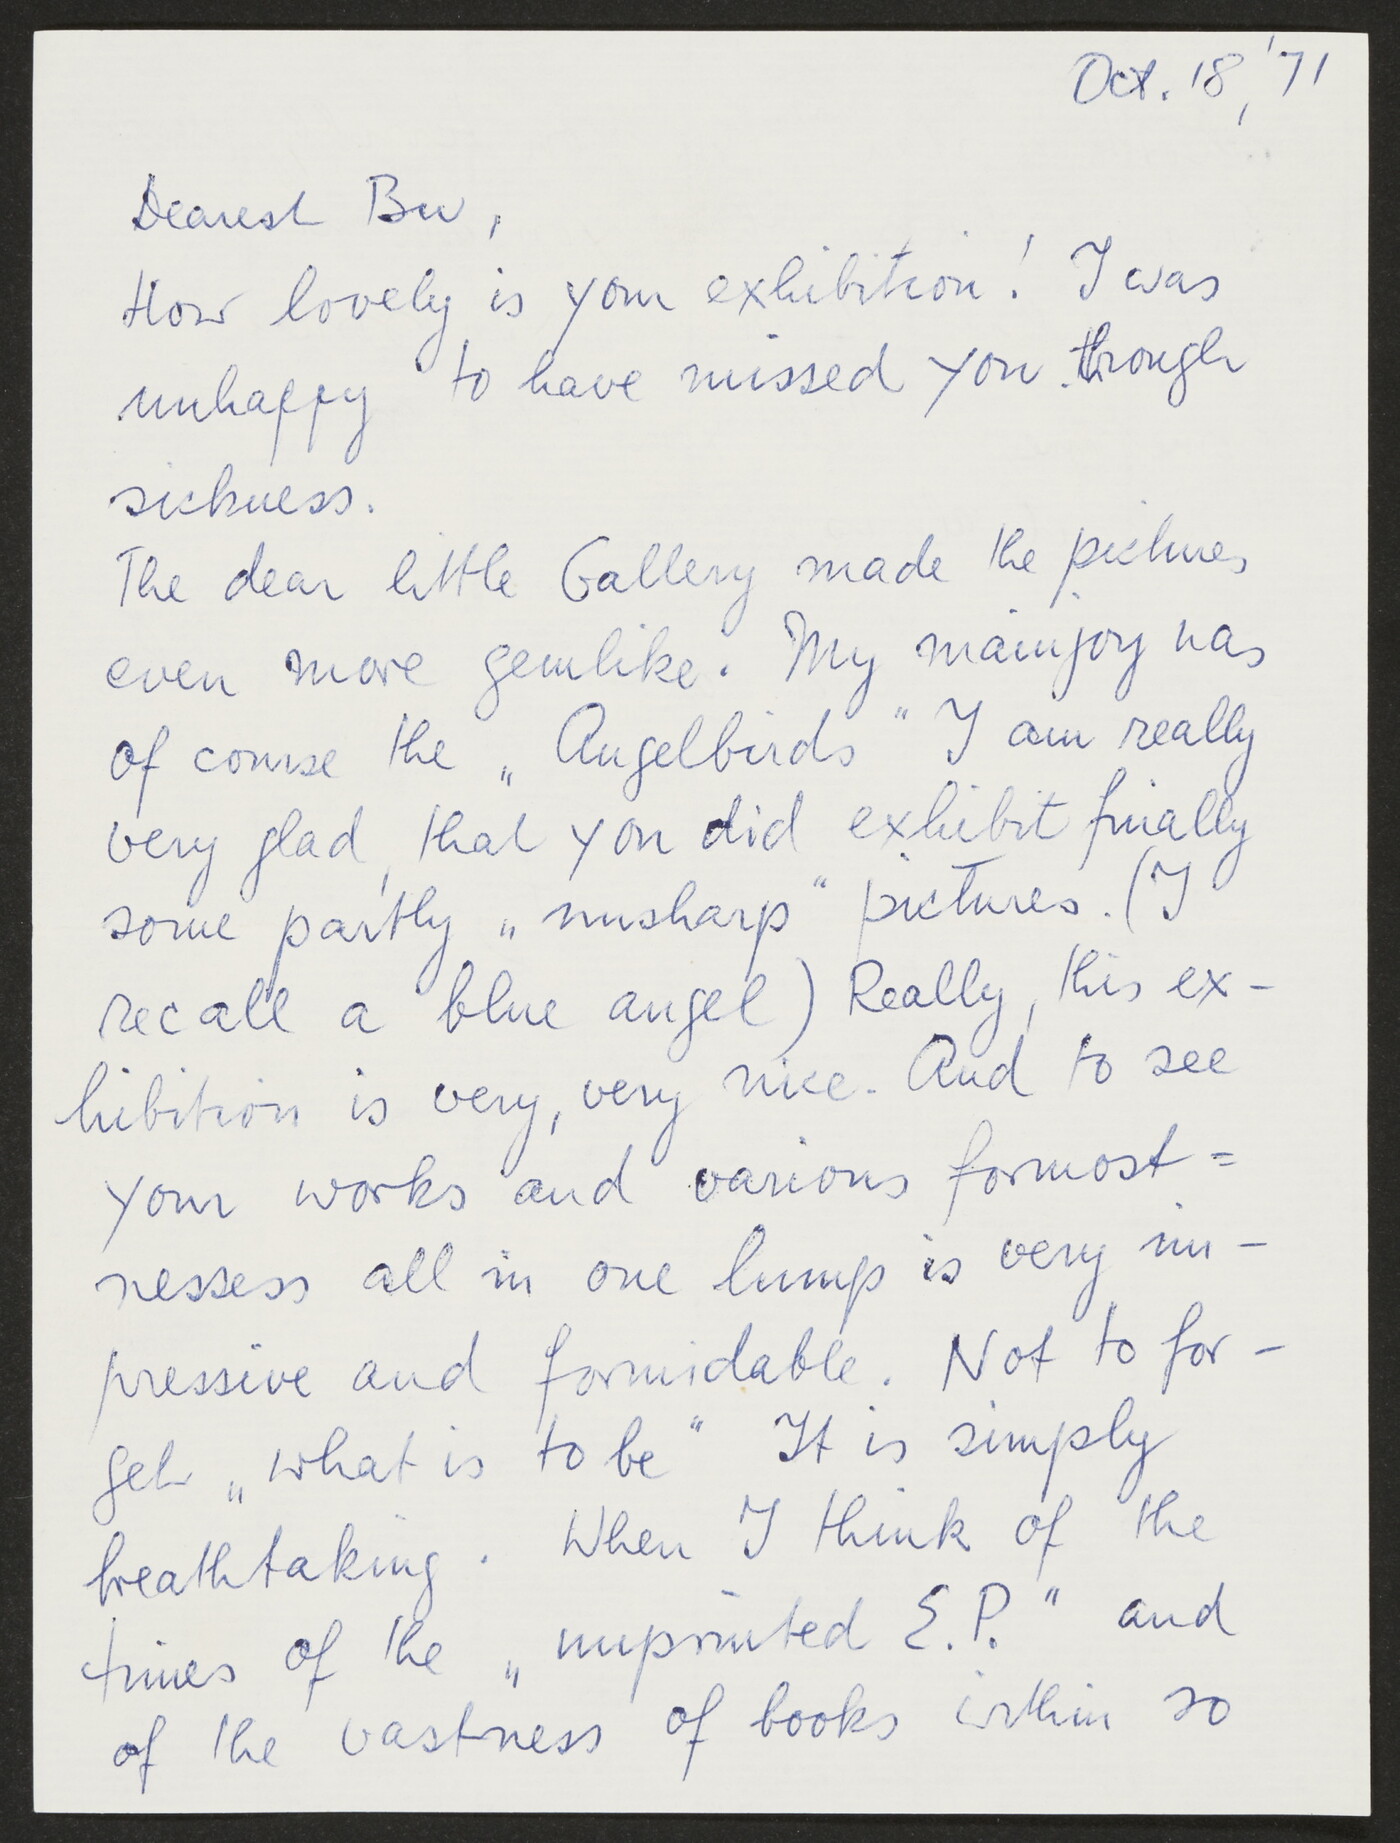 Oct. 18, '71
Dearest Bu,
How lovely is your exhibition! I was
unhappy to have missed you through
sickness.
The dear little Gallery made the pictures
even more gemlike. My mainjoy was
of course the „Angelbirds“ I am really
very glad, that you did exhibit finally
some partly „unsharp“ pictures. (I
recall a blue angel) Really, this ex-
hibition is very, very nice. And to see
your works and various formost=
nessess all in one lump is very im-
pressive and formidable. Not to for-
get „what is to be“ It is simply
breathtaking. When I think of the
times of the „unprinted E.P.“ and
of the vastness of books within so